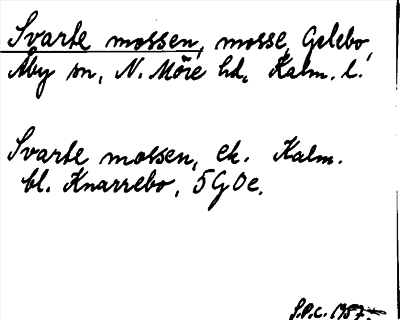 Svarte mossen, mosse, Gelebo,
Åby sn, N. Möre hd, Kalm. l.
Svarte mossen, ek. Kalm.
bl. Knarrebo, 5G0e.
S.P.C. 1957.